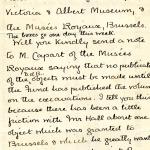 Victoria & Albert Museum, &
the Musées Royaux, Brussels.
The boxes go one day this week.
Will you kindly send a note
to M. Capart of the Musées
Royaux saying that no publication
of the objects must be made until
the Fund has published the volume
on the excavations. I tell you this
because there has been a little
friction with Mr Hall about one
object which was granted to
Brussels & which he greatly wanted